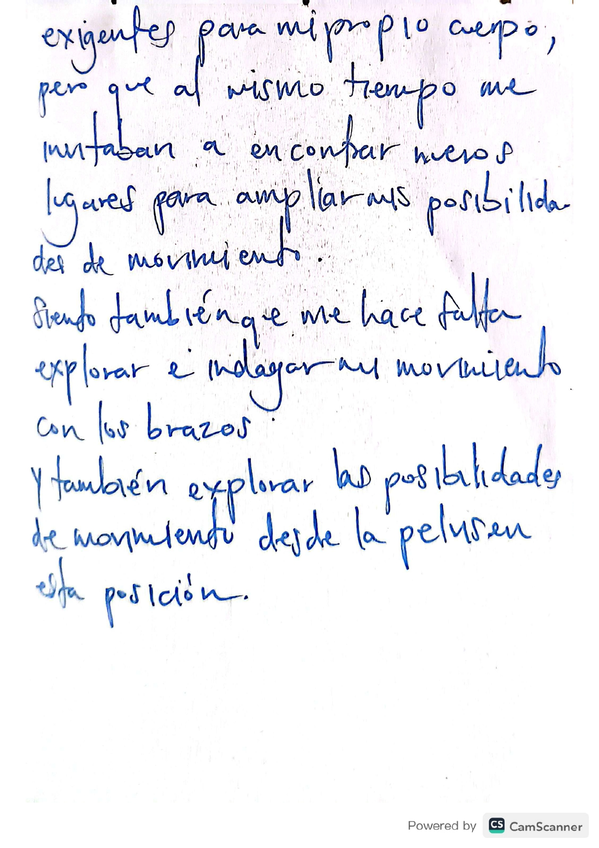 exigentes para mi propio cuerpo,
pero que al mismo tiempo me
invitaban a encontrar nuevos
lugares para ampliar mis posibilida-
des de movimiento.
Siento también que me hace falta
explorar e indagar mi movimiento
con los brazos.
Y también explorar las posibilidades
de movimiento desde la pelvis en
esta posición.
Powered by CS CamScanner